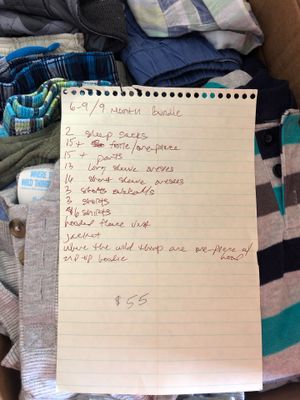 6-9/9 month Bundle
2 sleep sacks
15+ footie/one-piece
15+ pants
13 long sleeve onesies
16 short sleeve onesies
3 shorts overalls
3 shorts
6 shirts
hooded fleece vest
jacket
where the wild things are one-piece w/ hood
zip up hoodie
$55
WHERE THE
WILD THINGS